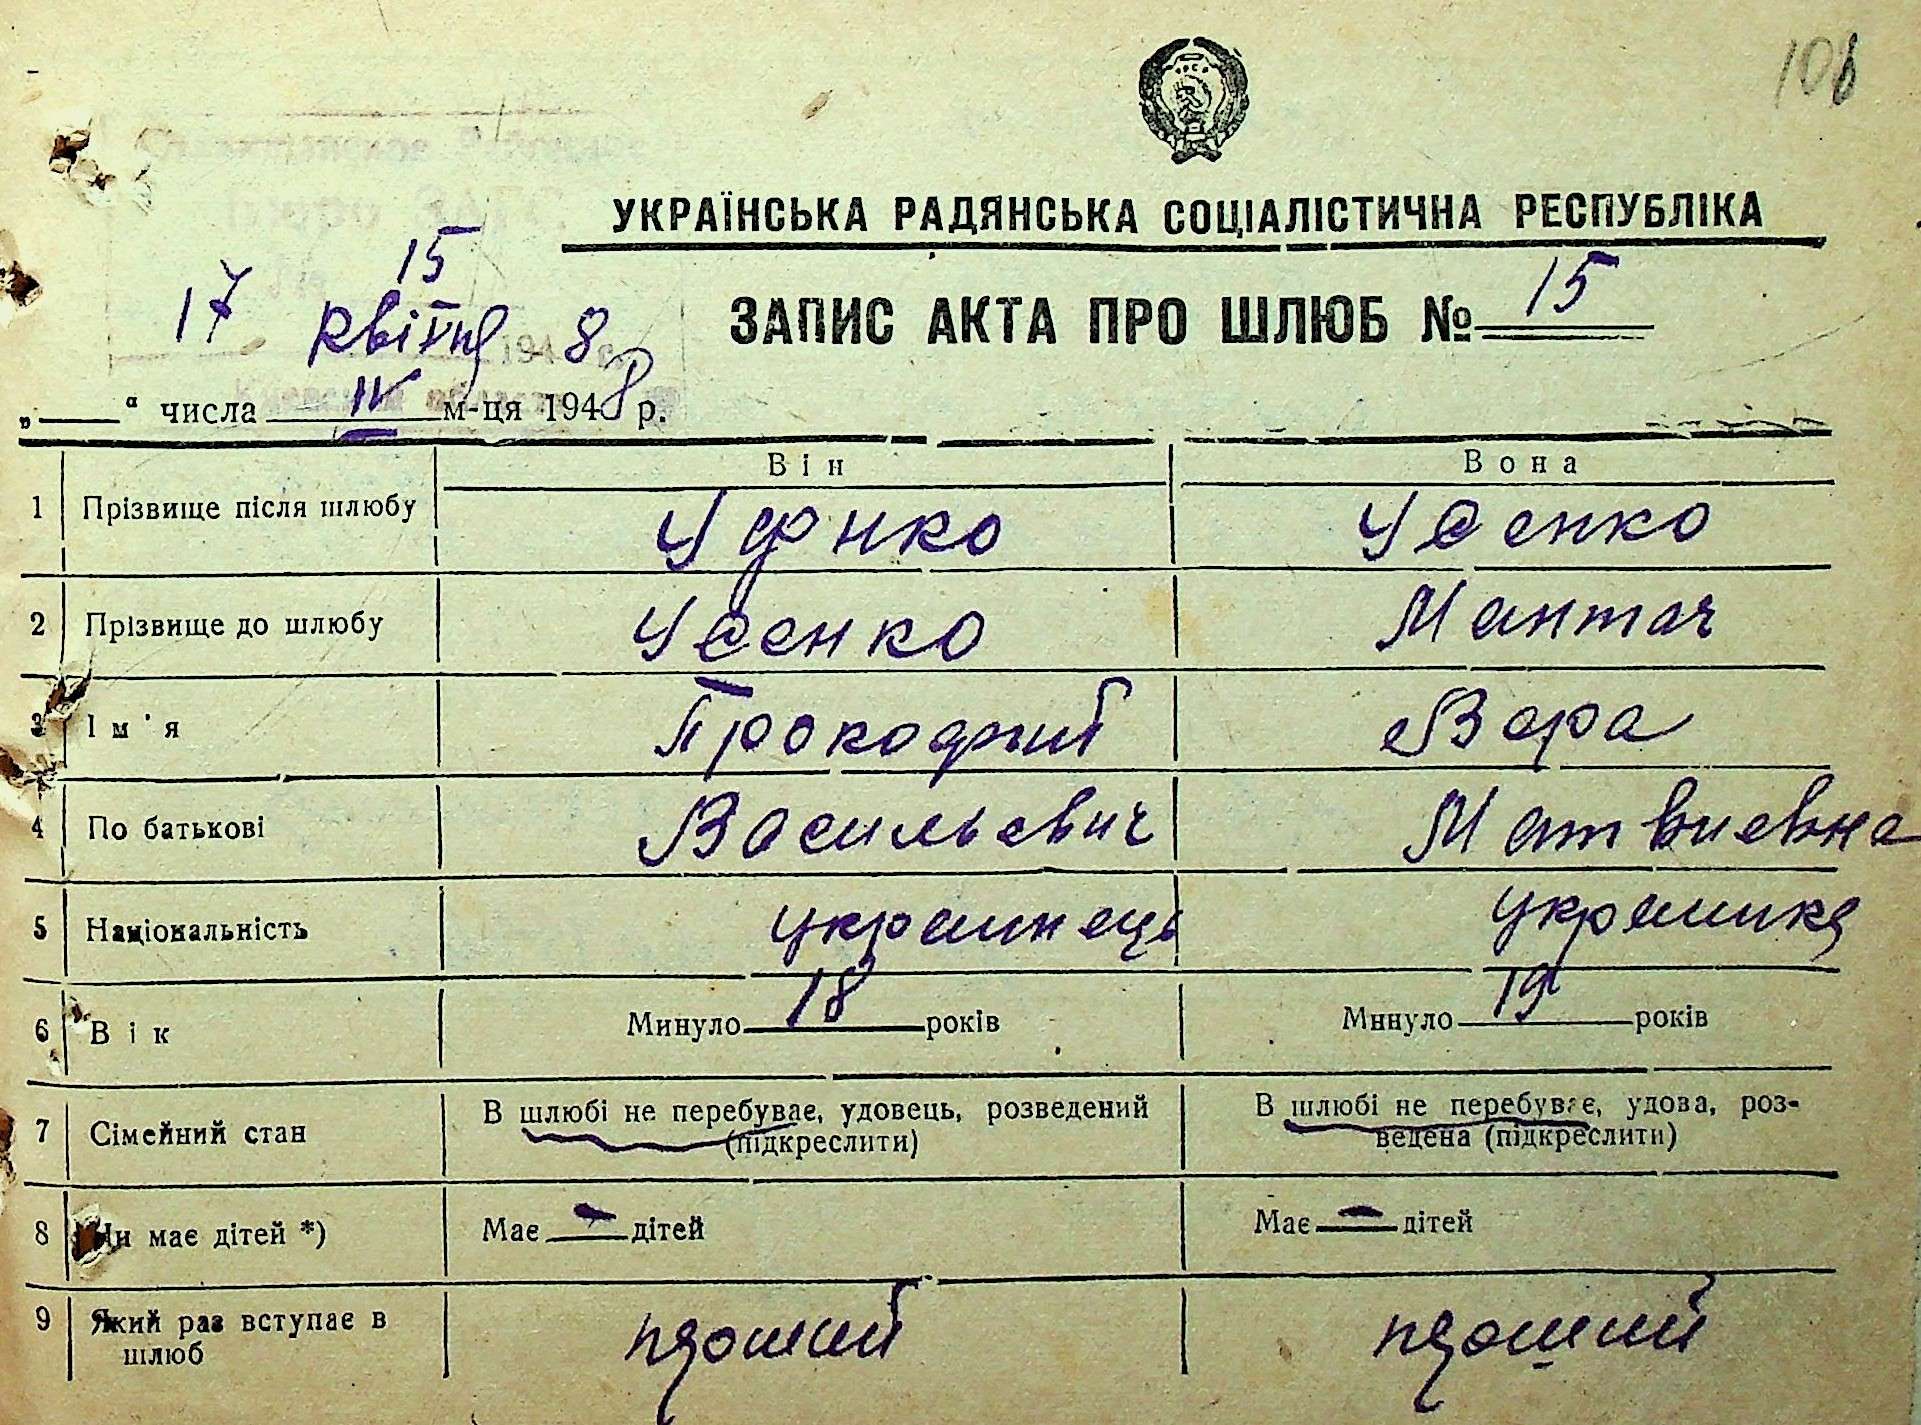 108
УКРАЇНСЬКА РАДЯНСЬКА СОЦІАЛІСТИЧНА РЕСПУБЛІКА
15
17 квітня 8
ЗАПИС АКТА ПРО ШЛЮБ № 15
„ “ числа IV м-ця 1948 р.
Він Вона
1 Прізвище після шлюбу Усенко
2 Прізвище до шлюбу Усенко Мантач
3 Ім'я Прокофий Вера
4 По батькові Васильевич Матвиевна
5 Національність украинець украинка
6 Вік Минуло 18 років Минуло 19 років
7 Сімейний стан В шлюбі не перебуває, удовець, розведений (підкреслити) В шлюбі не перебуває, удова, роз-
ведена (підкреслити)
8 Чи має дітей *) Має — дітей Має — дітей
9 Який раз вступає в
шлюб перший перший